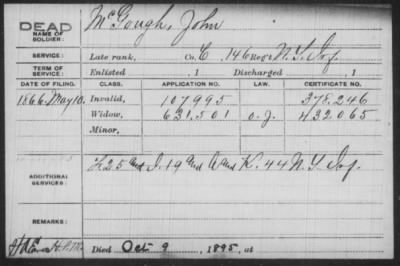 DEAD
NAME OF SOLDIER:
McGough, John
SERVICE:
Late rank, Co. C, 146 Reg't N.Y. Inf.
TERM OF SERVICE:
Enlisted , 1 Discharged , 1
DATE OF FILING. CLASS. APPLICATION NO. LAW. CERTIFICATE NO.
1866. May 10. Invalid, 107,995 378,246
Widow, 631,501 o.g. 432,065
Minor,
ADDITIONAL SERVICES:
& 25 and I. 19 and A and K. 44 N.Y. Inf.
REMARKS:
Died Oct 9, 1895, at